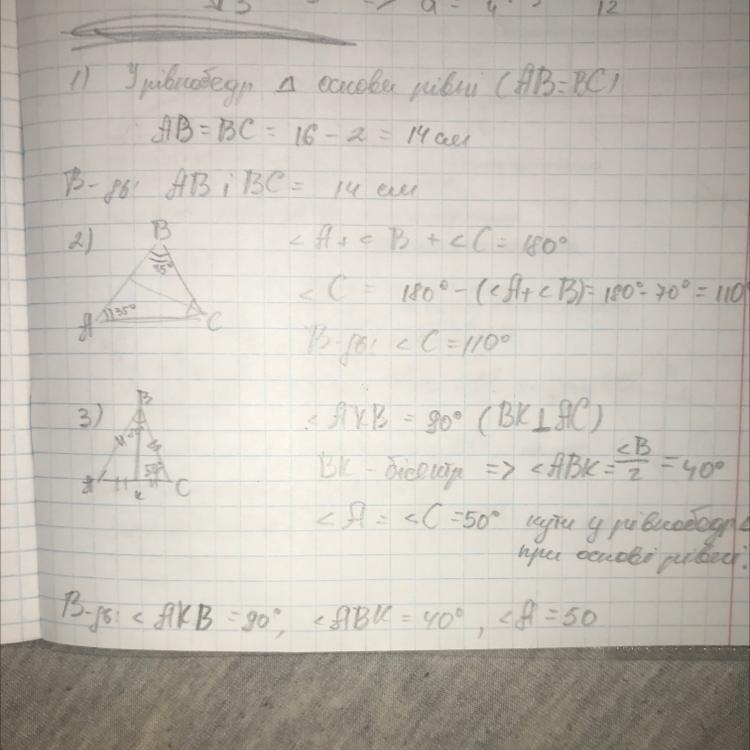 √3 => a = 4 12
1) У рівнобедр Δ основи рівні (AB=BC)
AB = BC = 16 - 2 = 14 см
В-дь: AB і BC = 14 см
2)
B
35°
A
35°
C
<A + <B + <C = 180°
<C = 180° - (<A+<B) = 180° - 70° = 110°
В-дь: <C = 110°
3)
B
A
50°
K
C
<AKB = 90° (BK⊥AC)
BK - бісектр => <ABK = <B/2 = 40°
<A = <C = 50° кути у рівнобедр Δ
при основі рівні.
В-дь: <AKB = 90°, <ABK = 40°, <A = 50